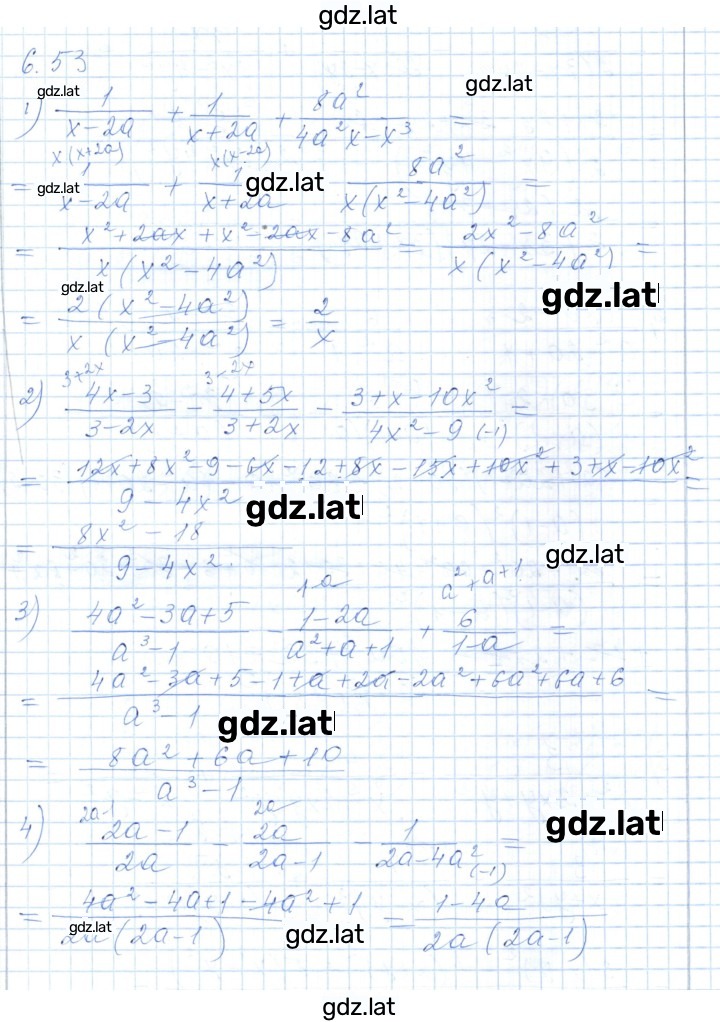 gdz.lat
6.53
gdz.lat
gdz.lat
1) 1/(x-2a) + 1/(x+2a) + 8a²/(4a²x-x³) =
x(x+2a) x(x-2a)
= gdz.lat 1/(x-2a) + 1/(x+2a) gdz.lat 8a²/(x(x²-4a²)) =
= (x²+2ax+x²-2ax-8a²)/(x(x²-4a²)) = (2x²-8a²)/(x(x²-4a²)) =
gdz.lat
gdz.lat
= 2(x²-4a²)/(x(x²-4a²)) = 2/x
3+2x 3-2x
2) (4x-3)/(3-2x) - (4+5x)/(3+2x) - (3+x-10x²)/(4x²-9) (-1) =
= (12x+8x²-9-6x-12+8x-15x+10x²+3+x-10x²)/(9-4x²) =
gdz.lat
= (8x²-18)/(9-4x²)
gdz.lat
1-a a²+a+1
3) (4a²-3a+5)/(a³-1) - (1-2a)/(a²+a+1) + 6/(1-a) =
= (4a²-3a+5-1+a+2a-2a²+6a²+6a+6)/(a³-1) =
gdz.lat
= (8a²+6a+10)/(a³-1)
2a-1 2a
gdz.lat
4) (2a-1)/2a - 2a/(2a-1) - 1/(2a-4a²) (-1) =
= (4a²-4a+1-4a²+1)/(2a(2a-1)) = (1-4a)/(2a(2a-1))
gdz.lat
gdz.lat
gdz.lat